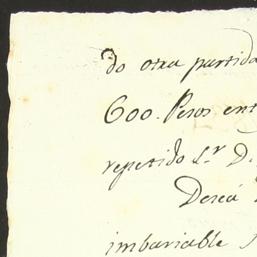 do otra partida
600. Pesos ent
repetido S.r D.
Deseá
imbariable